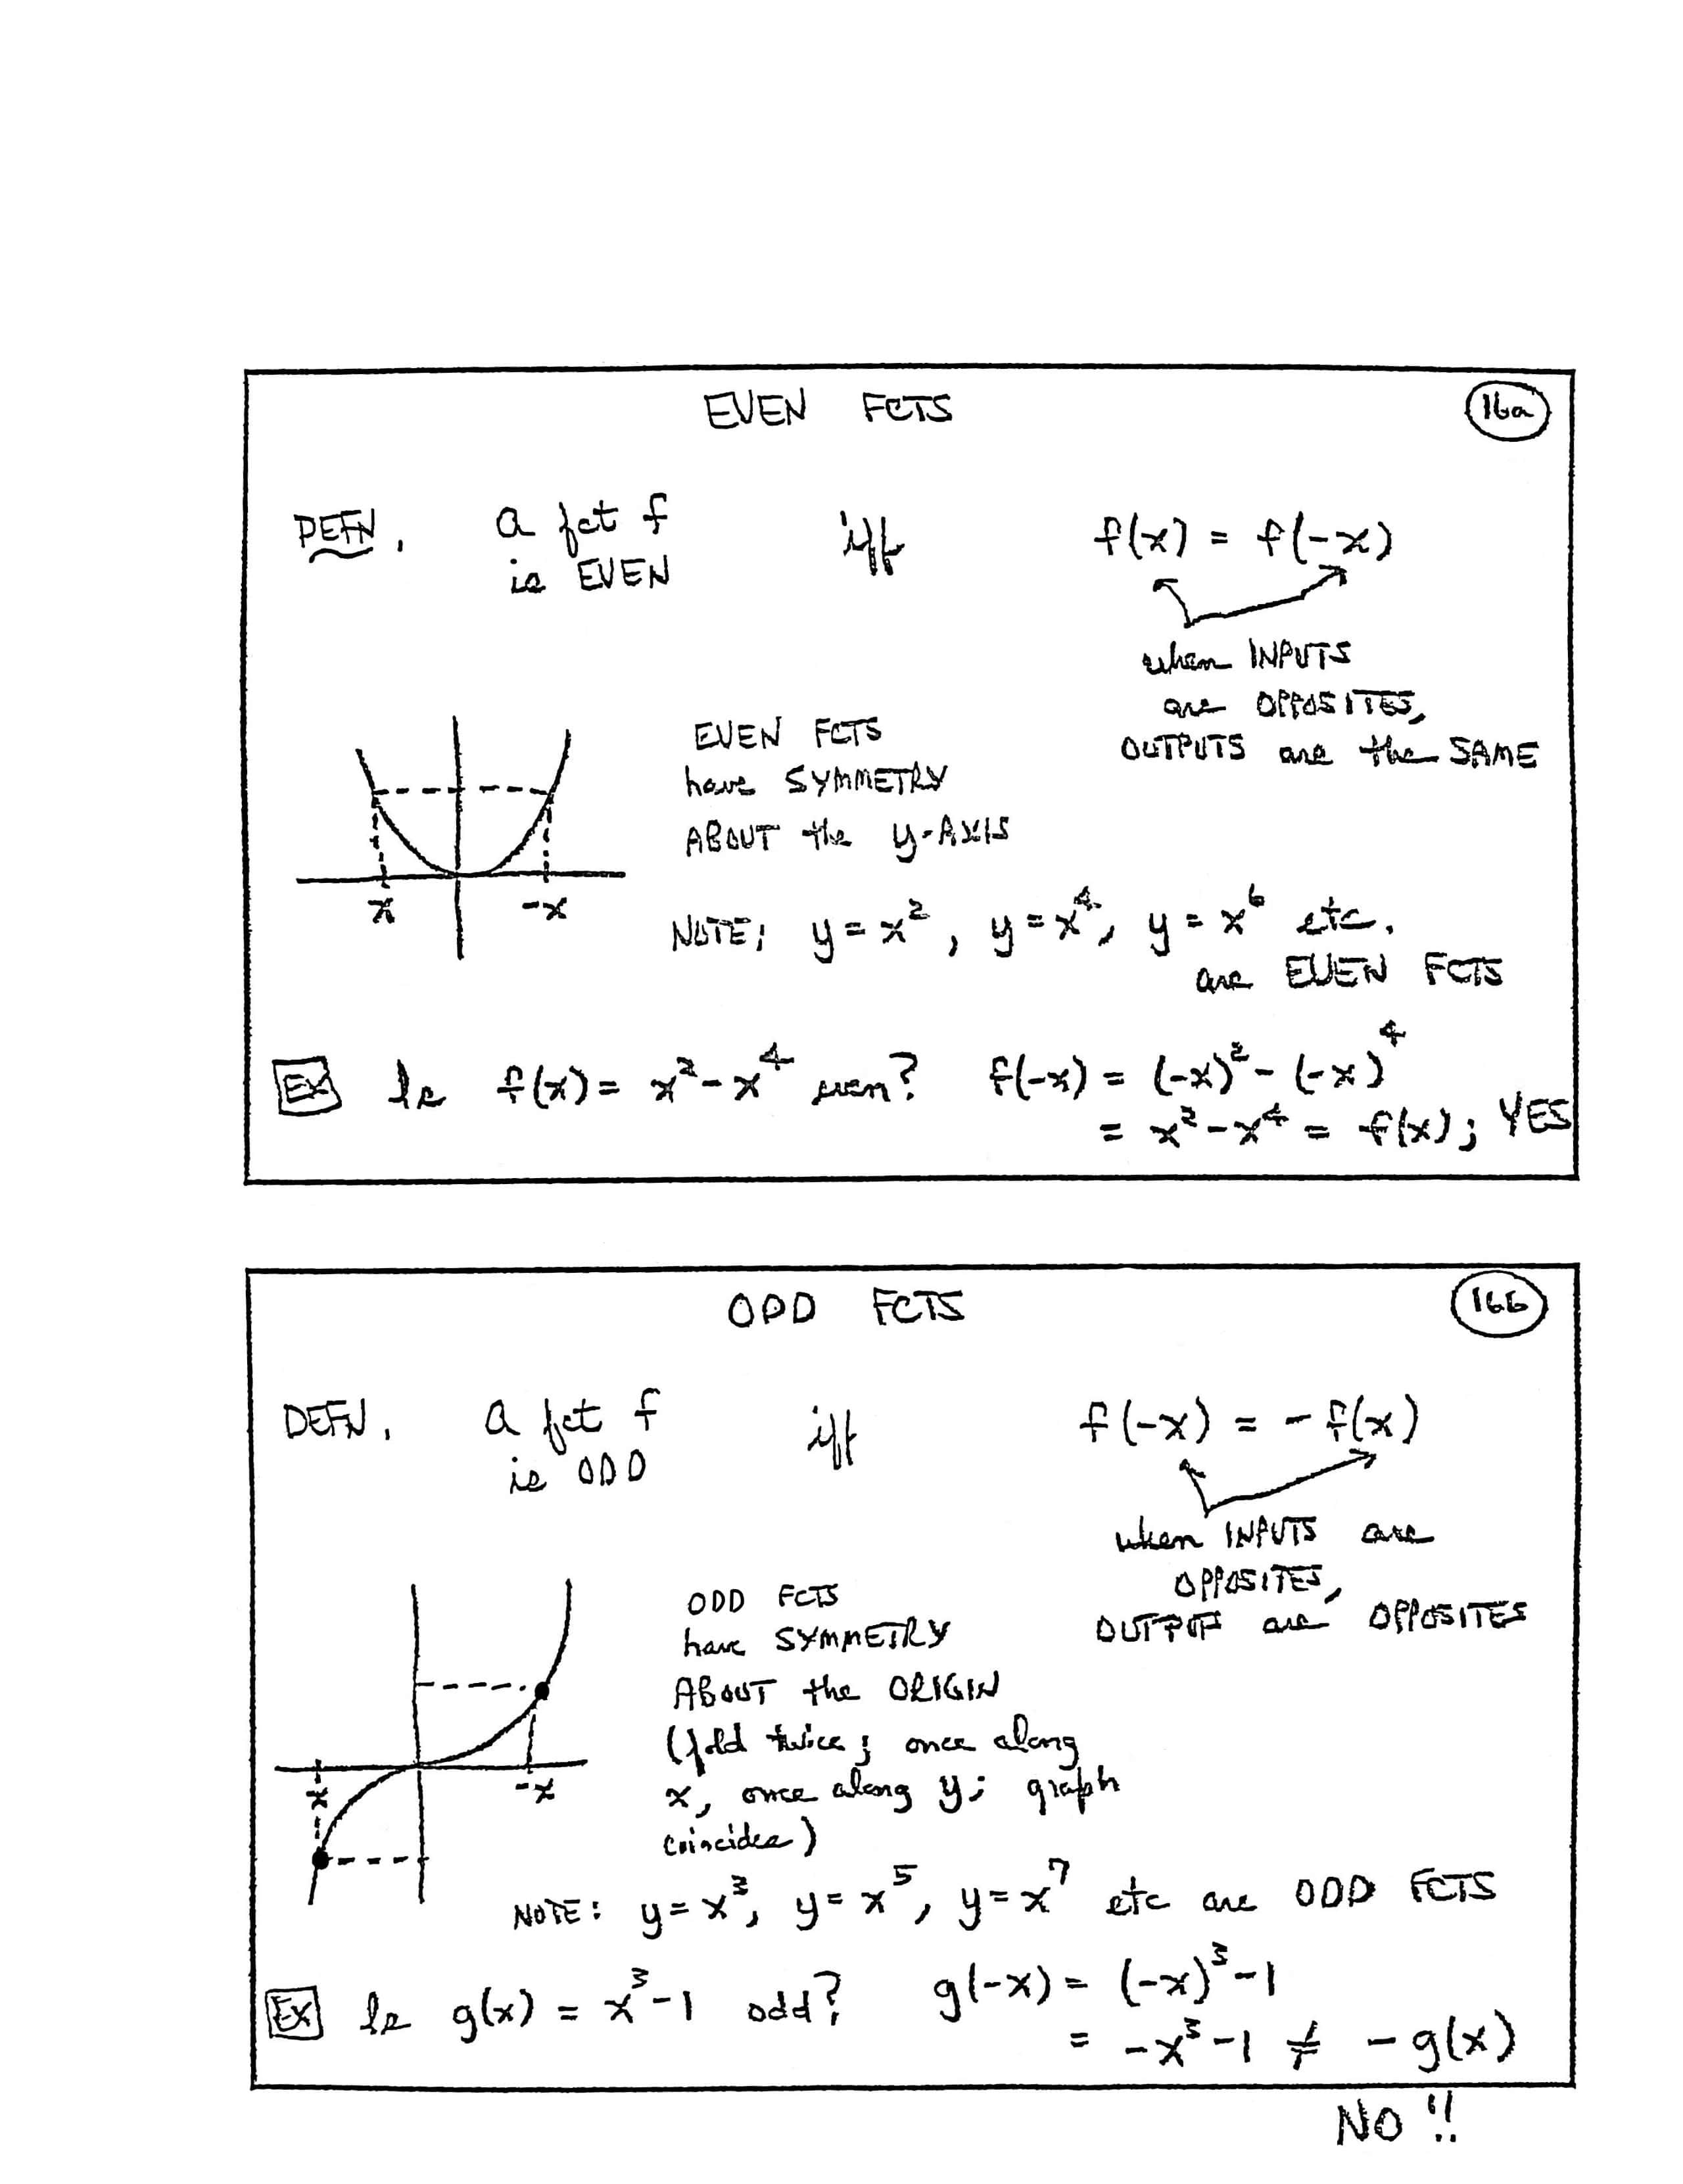 EVEN FCTS
16a
DEFN. a fct f iff f(x) = f(-x)
is EVEN
when INPUTS
are OPPOSITES,
OUTPUTS are the SAME
EVEN FCTS
have SYMMETRY
ABOUT the y-AXIS
x -x
NOTE: y = x², y = x⁴, y = x⁶ etc.
are EVEN FCTS
EX Is f(x) = x² - x⁴ even? f(-x) = (-x)² - (-x)⁴
= x² - x⁴ = f(x); YES
ODD FCTS
16b
DEFN. a fct f iff f(-x) = - f(x)
is ODD
when INPUTS are
OPPOSITES,
OUTPUT are OPPOSITES
ODD FCTS
have SYMMETRY
ABOUT the ORIGIN
(fold twice; once along
x, once along y; graph
coincides)
x -x
NOTE: y = x³, y = x⁵, y = x⁷ etc are ODD FCTS
EX Is g(x) = x³ - 1 odd? g(-x) = (-x)³ - 1
= -x³ - 1 ≠ - g(x)
NO !!